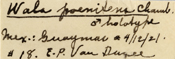 Wala poenitens Chamb.
♂ holotype
Mex.: Guaymas 4/12/21.
# 18. E.P. Van Duzee